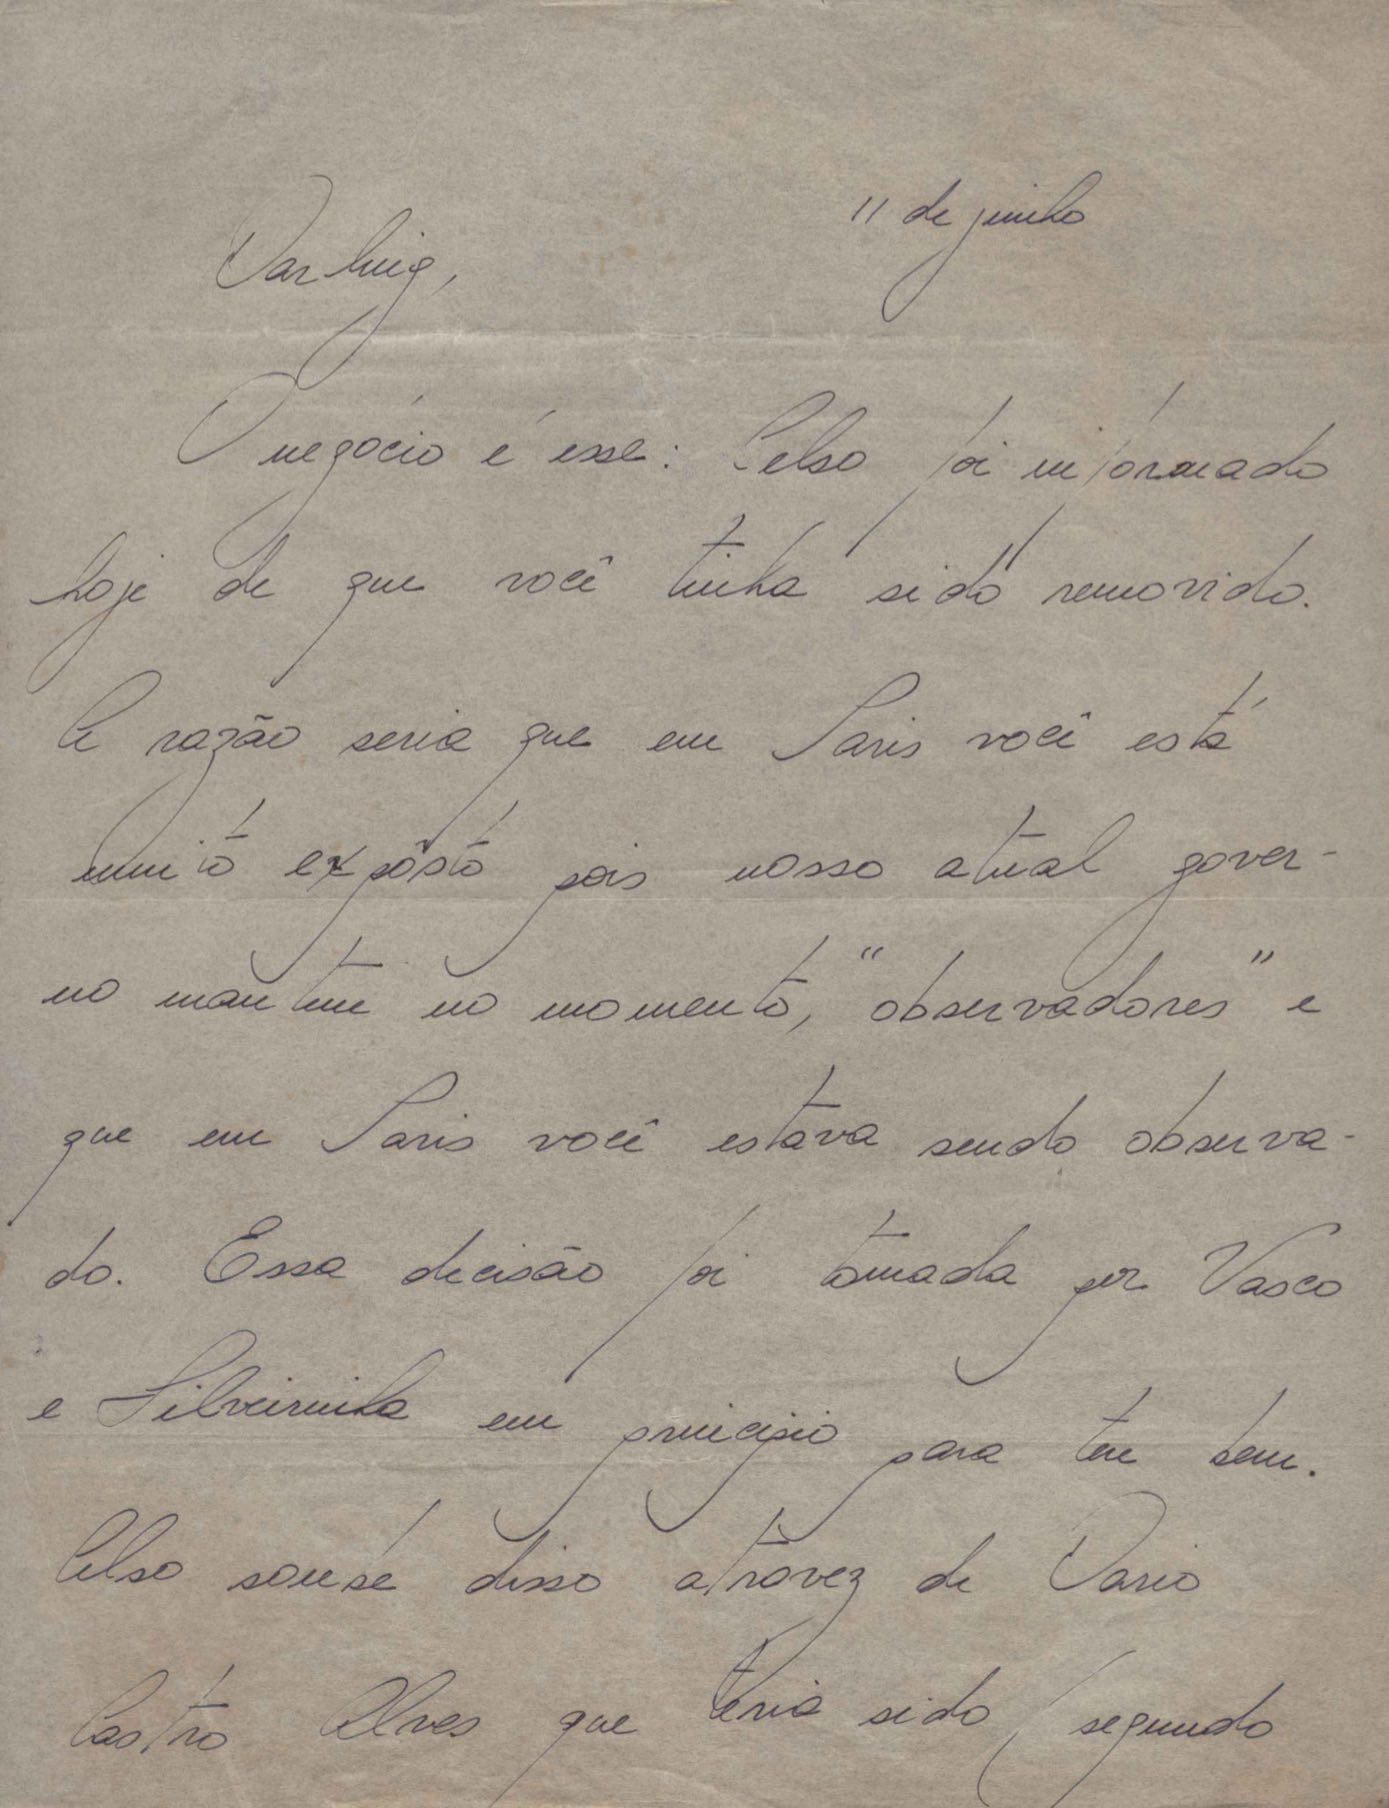 11 de junho
Darling,
O negócio é esse: Celso foi informado
hoje de que você tinha sido removido.
A razão seria que em Paris você está
muito expôsto pois nosso atual gover-
no mantem no momento, "observadores" e
que em Paris você estava sendo observa-
do. Essa decisão foi tomada por Vasco
e Silveirinha em principio para teu bem.
Celso soube disso atravez de Dario
Castro Alves que teria sido (segundo